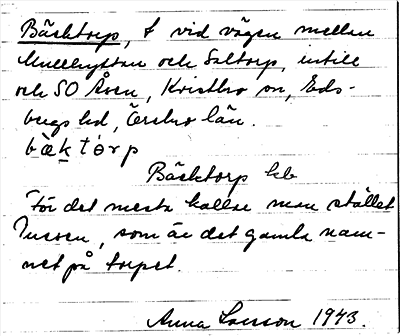 Bäcktorp, t vid vägen mellan
Mullhyttan och Saltorp, intill
och SO Åsen, Kvistbro sn, Eds-
bergs hd, Örebro län.
bæ̀ḵtòrp
Bäcktorp
För det mesta kallar man stället
som är det gamla nam-
net på torpet.
Anna Larsson 1943.